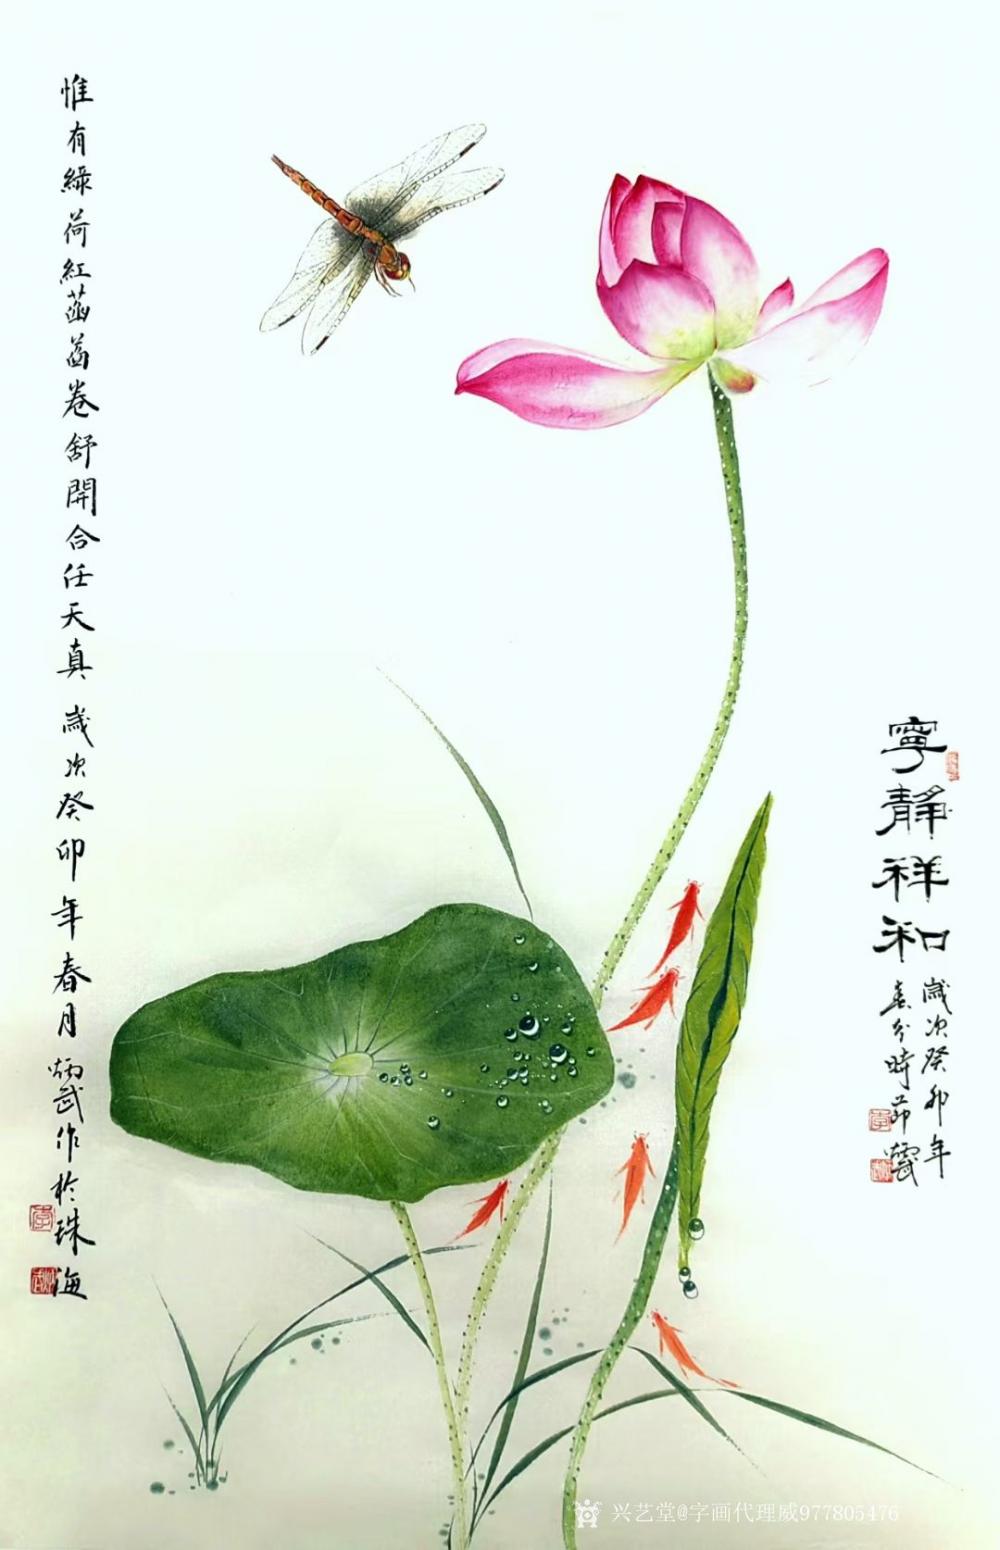 惟有綠荷紅菡萏卷舒開合任天真 歲次癸卯年春月炳武作於珠海
寧靜祥和
歲次癸卯年
春分時節炳武
兴艺堂@字画代理威977805476